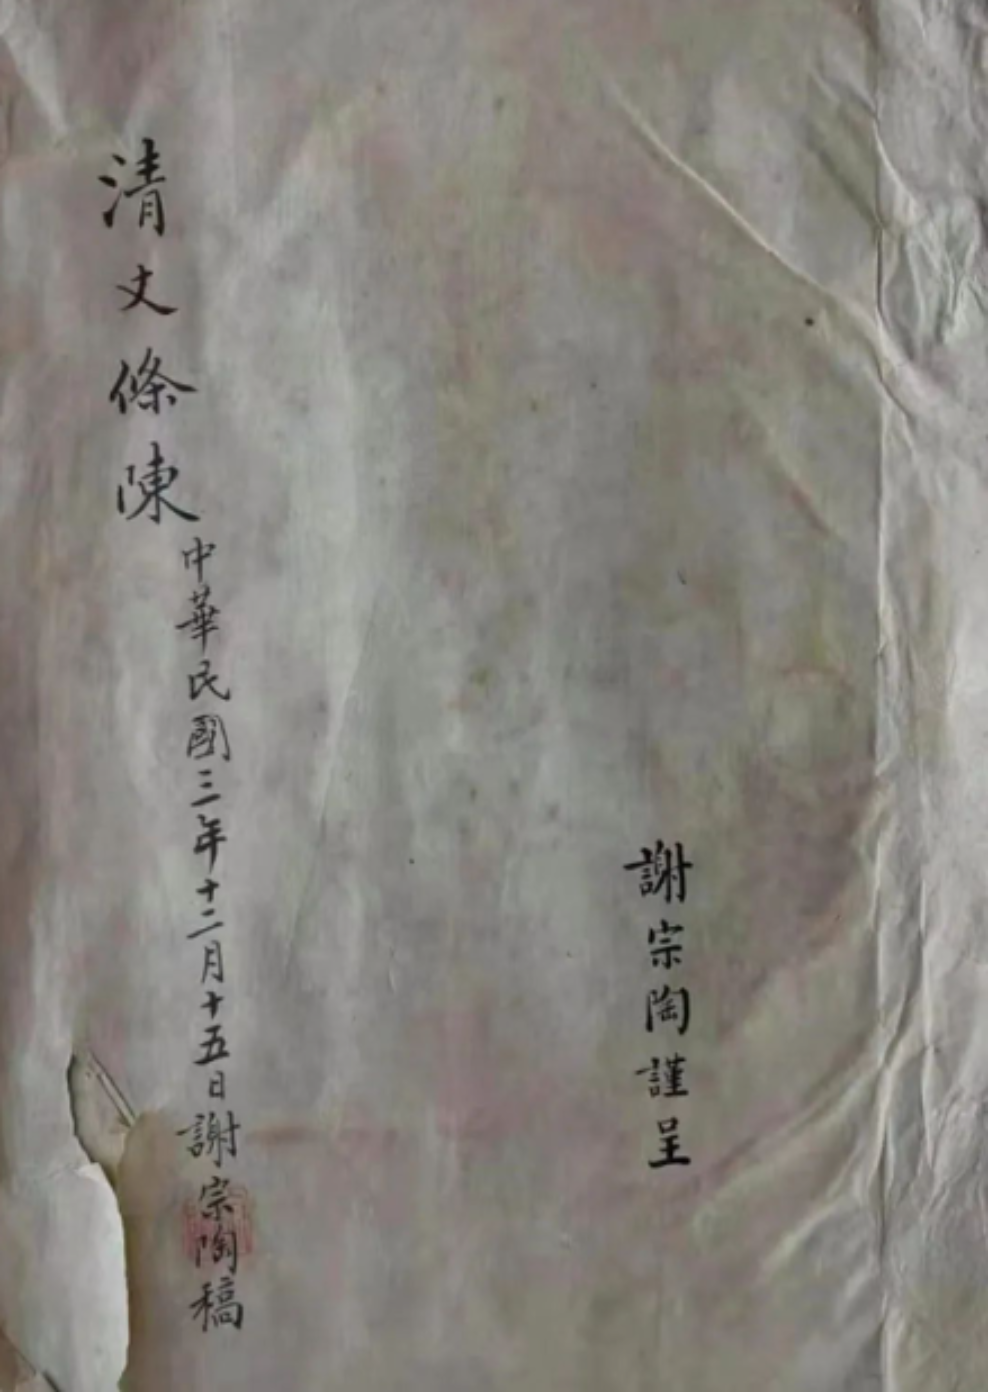 謝宗陶謹呈
清丈條陳
中華民國三年十二月十五日謝宗陶稿